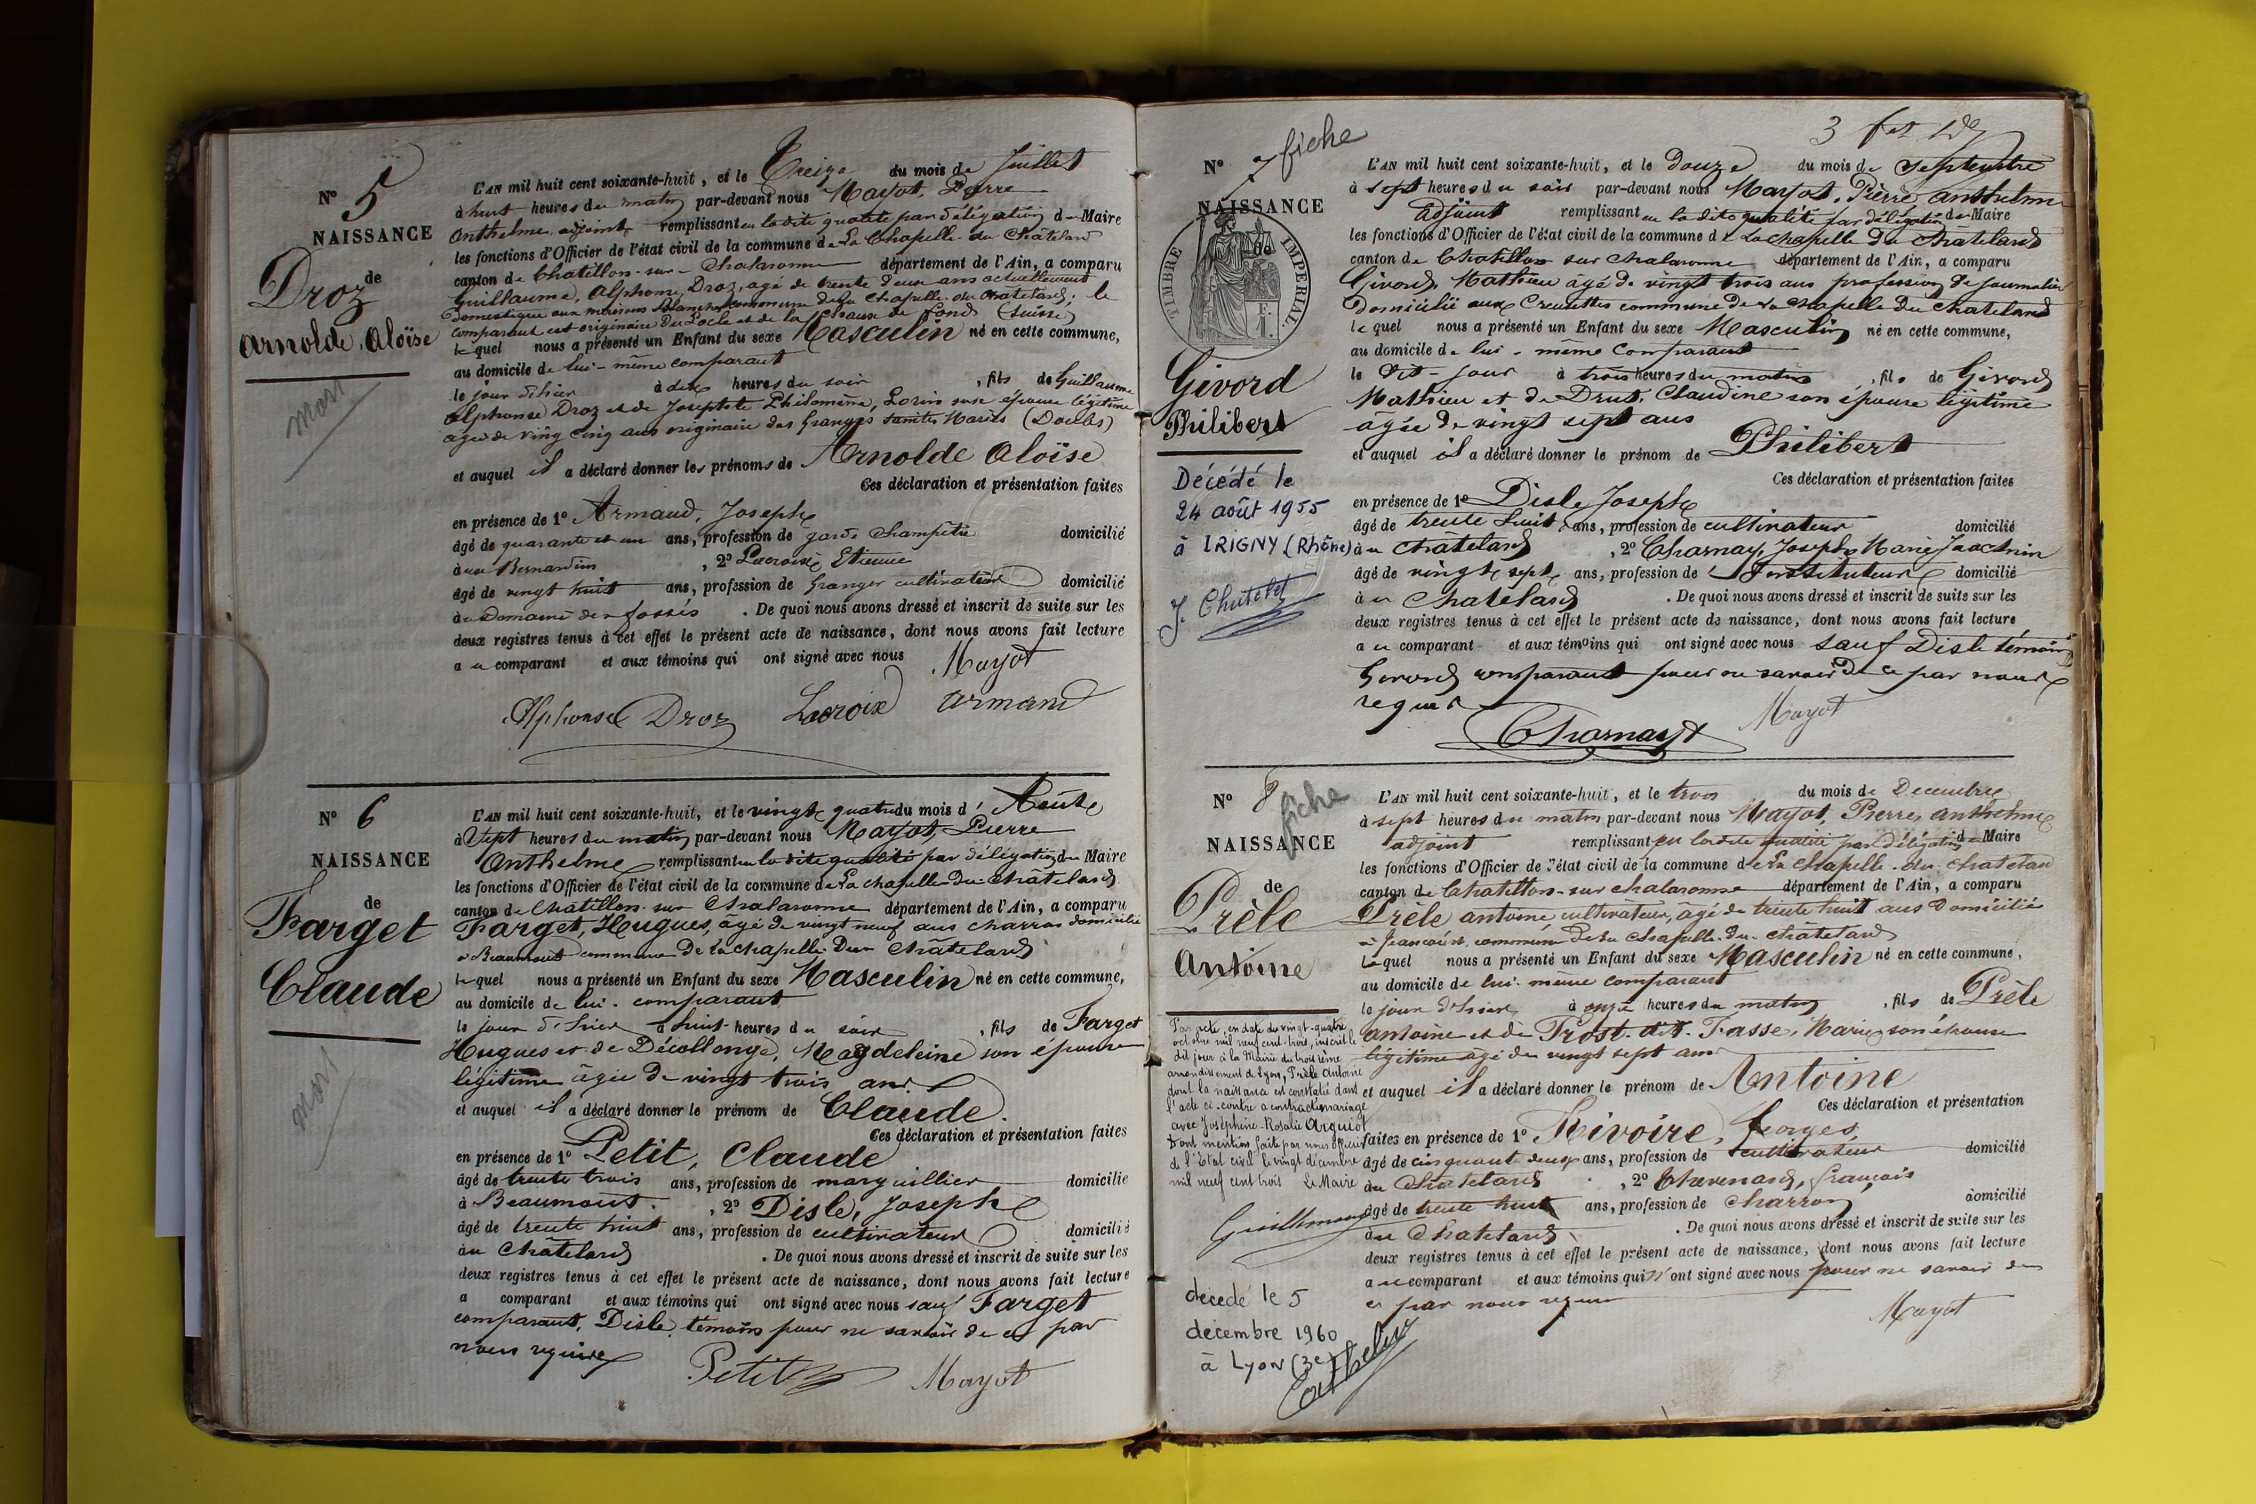 N° 5
NAISSANCE
de
Droz
Arnolde, Aloïse
mort
L'AN mil huit cent soixante-huit, et le Treize du mois de Juillet
à huit heures du matin par-devant nous Mayot, Pierre
Anthelme adjoint remplissant en la dite qualité par délégation du Maire
les fonctions d'Officier de l'état civil de la commune de La Chapelle du Châtelard
canton de Chatillon-sur-Chalaronne département de l'Ain, a comparu
Guillaume, Alphonse, Droz, agé de trente deux ans actuellement
domestique aux maisons blanches commune de la Chapelle du Châtelard; le
comparant est originaire du Locle et de la Chaux de Fond (Suisse)
lequel nous a présenté un Enfant du sexe Masculin né en cette commune,
au domicile de lui-même comparant
le jour d'hier à deux heures du soir, fils de Guillaume
Alphonse Droz et de Josephte Philomène, son épouse légitime
agée de vingt cinq ans originaire des Granges Saintes Maries (Doubs)
et auquel il a déclaré donner les prénoms de Arnolde Aloïse
Ces déclaration et présentation faites
en présence de 1° Armand, Joseph
âgé de quarante et un ans, profession de garde champêtre domicilié
à aux Bernardins, 2° Lacroix Etienne
âgé de vingt huit ans, profession de Granger cultivateur domicilié
à au Domaine des fossés. De quoi nous avons dressé et inscrit de suite sur les
deux registres tenus à cet effet le présent acte de naissance, dont nous avons fait lecture
au comparant et aux témoins qui ont signé avec nous Mayot
Alphonse Droz Lacroix Armand
N° 6
NAISSANCE
de
Farget
Claude
mort
L'AN mil huit cent soixante-huit, et le vingt quatre du mois d'Août
à Sept heures du matin par-devant nous Mayot, Pierre
Anthelme remplissant en la dite qualité par délégation du Maire
les fonctions d'Officier de l'état civil de la commune de La Chapelle du Châtelard
canton de Châtillon sur Chalaronne département de l'Ain, a comparu
Farget, Hugues, âgé de vingt neuf ans charron domicilié
à Beaumont commune de la Chapelle Du Châtelard
lequel nous a présenté un Enfant du sexe Masculin né en cette commune,
au domicile de lui-comparant
le jour d'hier à huit heures du soir, fils de Farget
Hugues et de Décollonge, Magdeleine son épouse
légitime âgée de vingt trois ans
et auquel il a déclaré donner le prénom de Claude.
Ces déclaration et présentation faites
en présence de 1° Petit, Claude
âgé de trente trois ans, profession de marguillier domicilié
à Beaumont., 2° Disle, Joseph
âgé de trente huit ans, profession de cultivateur domicilié
à au Châtelard. De quoi nous avons dressé et inscrit de suite sur les
deux registres tenus à cet effet le présent acte de naissance, dont nous avons fait lecture
a comparant et aux témoins qui ont signé avec nous sauf Farget
comparant, Disle, témoin pour ne savoir de ce par
nous requis
Petit Mayot
3
N° 7 fiche
NAISSANCE
de
TIMBRE IMPERIAL.
Givord
Philibert
Décédé le
24 août 1955
à IRIGNY (Rhône)
J. Chatelet
L'AN mil huit cent soixante-huit, et le douze du mois de Septembre
à sept heures du soir par-devant nous Mayot, Pierre Anthelme
adjoint remplissant en la dite qualité par délégation du Maire
les fonctions d'Officier de l'état civil de la commune de La Chapelle Du Châtelard
canton de Chatillon sur Chalaronne département de l'Ain, a comparu
Givord, Mathieu âgé de vingt trois ans profession de journalier
Domicilié aux Creusettes commune de la Chapelle du Chatelard
lequel nous a présenté un Enfant du sexe Masculin né en cette commune,
au domicile de lui-même comparant
le dit-jour à trois heures du matin, fils de Givord
Mathieu et de Drut, Claudine son épouse légitime
âgée de vingt sept ans
et auquel il a déclaré donner le prénom de Philibert
Ces déclaration et présentation faites
en présence de 1° Disle Joseph
âgé de trente huit ans, profession de cultivateur domicilié
à au Châtelard, 2° Charnay, Joseph Marie
âgé de vingt sept ans, profession de Instituteur domicilié
à au Châtelard. De quoi nous avons dressé et inscrit de suite sur les
deux registres tenus à cet effet le présent acte de naissance, dont nous avons fait lecture
au comparant et aux témoins qui ont signé avec nous sauf Disle témoin
Givord comparant pour ne savoir de ce par nous
requis
Charnay Mayot
N° 8 fiche
NAISSANCE
de
Prèle
Antoine
Par acte, en date du vingt-quatre
octobre mil neuf cent-trois, inscrit le
dit jour à la Mairie du troisième
arrondissement de Lyon, Prèle Antoine
dont la naissance est constatée dans
l'acte ci-contre a contracté mariage
avec Joséphine-Rosalie Arquiot
Dont mention faite par nous officier
de l'Etat civil le vingt décembre
mil neuf cent trois Le Maire
Guillemaud
décédé le 5
décembre 1960
à Lyon (3e)
L'AN mil huit cent soixante-huit, et le trois du mois de Décembre
à sept heures du matin par-devant nous Mayot, Pierre, Anthelme
adjoint remplissant en ladite qualité par délégation du Maire
les fonctions d'Officier de l'état civil de la commune de La Chapelle-du-Chatelard
canton de Chatillon-sur-Chalaronne département de l'Ain, a comparu
Prèle antoine cultivateur, âgé de trente huit ans Domicilié
commune de La Chapelle-du-Châtelard
lequel nous a présenté un Enfant du sexe Masculin né en cette commune,
au domicile de lui-même comparant
le jour d'hier à onze heures du matin, fils de Prèle
Antoine et de Prost-dit-Tasse, Marie, son épouse
légitime âgé de vingt sept ans
et auquel il a déclaré donner le prénom de Antoine
Ces déclaration et présentation
faites en présence de 1° Rivoire, Georges
âgé de cinquante deux ans, profession de cultivateur domicilié
au Châtelard, 2° Thévenard, Français
âgé de trente huit ans, profession de charron domicilié
à au Chatelard. De quoi nous avons dressé et inscrit de suite sur les
deux registres tenus à cet effet le présent acte de naissance, dont nous avons fait lecture
au comparant et aux témoins qui n'ont signé avec nous pour ne savoir de
ce par nous requis
Mayot